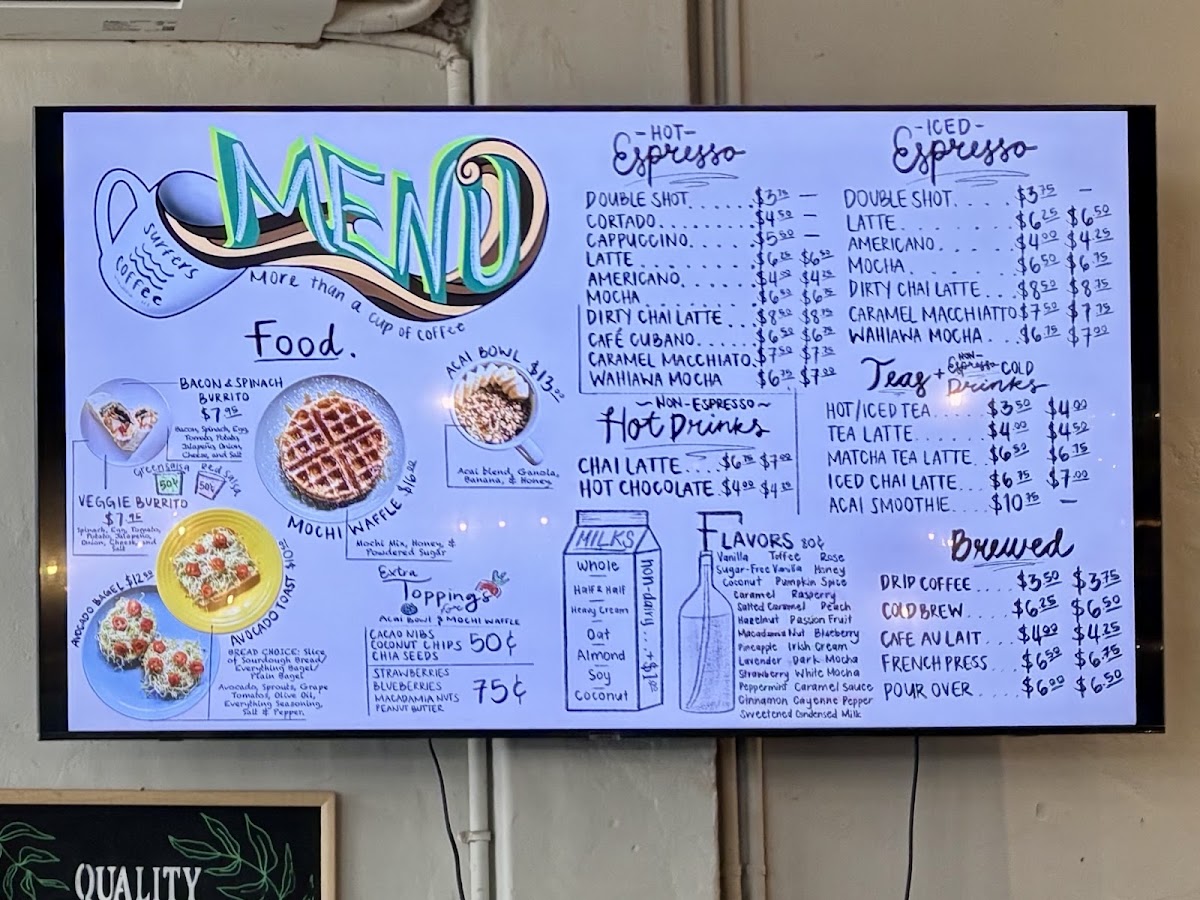 MENU
surfers
coffee
More than a cup of coffee
Food.
BACON & SPINACH
BURRITO
$7.95
Bacon, Spinach, Egg,
Tomato, Potato,
Jalapeño, Onion,
Cheese, and Salt
Green Salsa
50¢
Red Salsa
50¢
VEGGIE BURRITO
$7.95
Spinach, Egg, Tomato,
Potato, Jalapeño,
Onion, Cheese, and
Salt
MOCHI WAFFLE $16.00
Mochi Mix, Honey, &
Powdered Sugar
ACAI BOWL $13.00
Acai blend, Ganola,
Banana, & Honey
AVOCADO BAGEL $12.50
AVOCADO TOAST
BREAD CHOICE: Slice
of Sourdough Bread/
Everything Bagel/
Plain Bagel
Avocado, Sprouts, Grape
Tomatoes, Olive Oil,
Everything Seasoning,
Salt & Pepper.
Extra
Toppings
for
ACAI BOWL & MOCHI WAFFLE
CACAO NIBS
COCONUT CHIPS 50¢
CHIA SEEDS
STRAWBERRIES
BLUEBERRIES
MACADAMIA NUTS 75¢
PEANUT BUTTER
-HOT-
Espresso
DOUBLE SHOT......$3.75 -
CORTADO.........$4.50 -
CAPPUCCINO......$5.50 -
LATTE...........$6.25 $6.50
AMERICANO.......$4.00 $4.25
MOCHA...........$6.50 $6.75
DIRTY CHAI LATTE...$8.50 $8.75
CAFÉ CUBANO.....$6.50 $6.75
CARAMEL MACCHIATO.$7.50 $7.75
WAHIAWA MOCHA $6.75 $7.00
~NON-ESPRESSO~
Hot Drinks
CHAI LATTE....$6.75 $7.00
HOT CHOCOLATE.$4.00 $4.25
MILKS
Whole
Half & Half
Heavy Cream
Oat
Almond
Soy
Coconut
non-dairy...+$1.00
FLAVORS 80¢
Vanilla Toffee Rose
Sugar-Free Vanilla Honey
Coconut Pumpkin Spice
Caramel Rasperry
Salted Caramel Peach
Hazelnut Passion Fruit
Macadamia Nut Blueberry
Pineapple Irish Cream
Lavender Dark Mocha
Strawberry White Mocha
Peppermint Caramel Sauce
Cinnamon Cayenne Pepper
Sweetened Condensed Milk
-ICED-
Espresso
DOUBLE SHOT....$3.75 -
LATTE..........$6.25 $6.50
AMERICANO......$4.00 $4.25
MOCHA..........$6.50 $6.75
DIRTY CHAI LATTE...$8.50 $8.75
CARAMEL MACCHIATO $7.50 $7.75
WAHIAWA MOCHA..$6.75 $7.00
Teas + NON-Espresso COLD
Drinks
HOT/ICED TEA....$3.50 $4.00
TEA LATTE.......$4.00 $4.50
MATCHA TEA LATTE..$6.50 $6.75
ICED CHAI LATTE...$6.75 $7.00
ACAI SMOOTHIE...$10.75 -
Brewed
DRIP COFFEE....$3.50 $3.75
COLD BREW......$6.25 $6.50
CAFE AU LAIT...$4.00 $4.25
FRENCH PRESS...$6.50 $6.75
POUR OVER......$6.00 $6.50
QUALITY